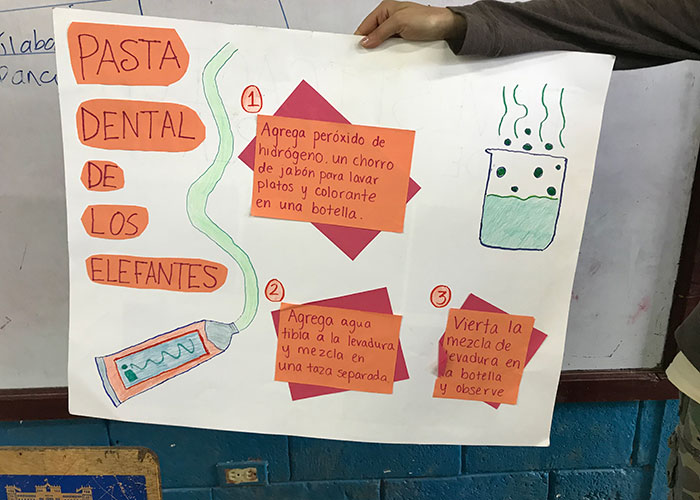 PASTA
DENTAL
DE
LOS
ELEFANTES
1
Agrega peróxido de
hidrógeno, un chorro
de jabón para lavar
platos y colorante
en una botella.
2
Agrega agua
tibia a la levadura
y mezcla en
una taza separada.
3
Vierta la
mezcla de
levadura en
la botella
y observe